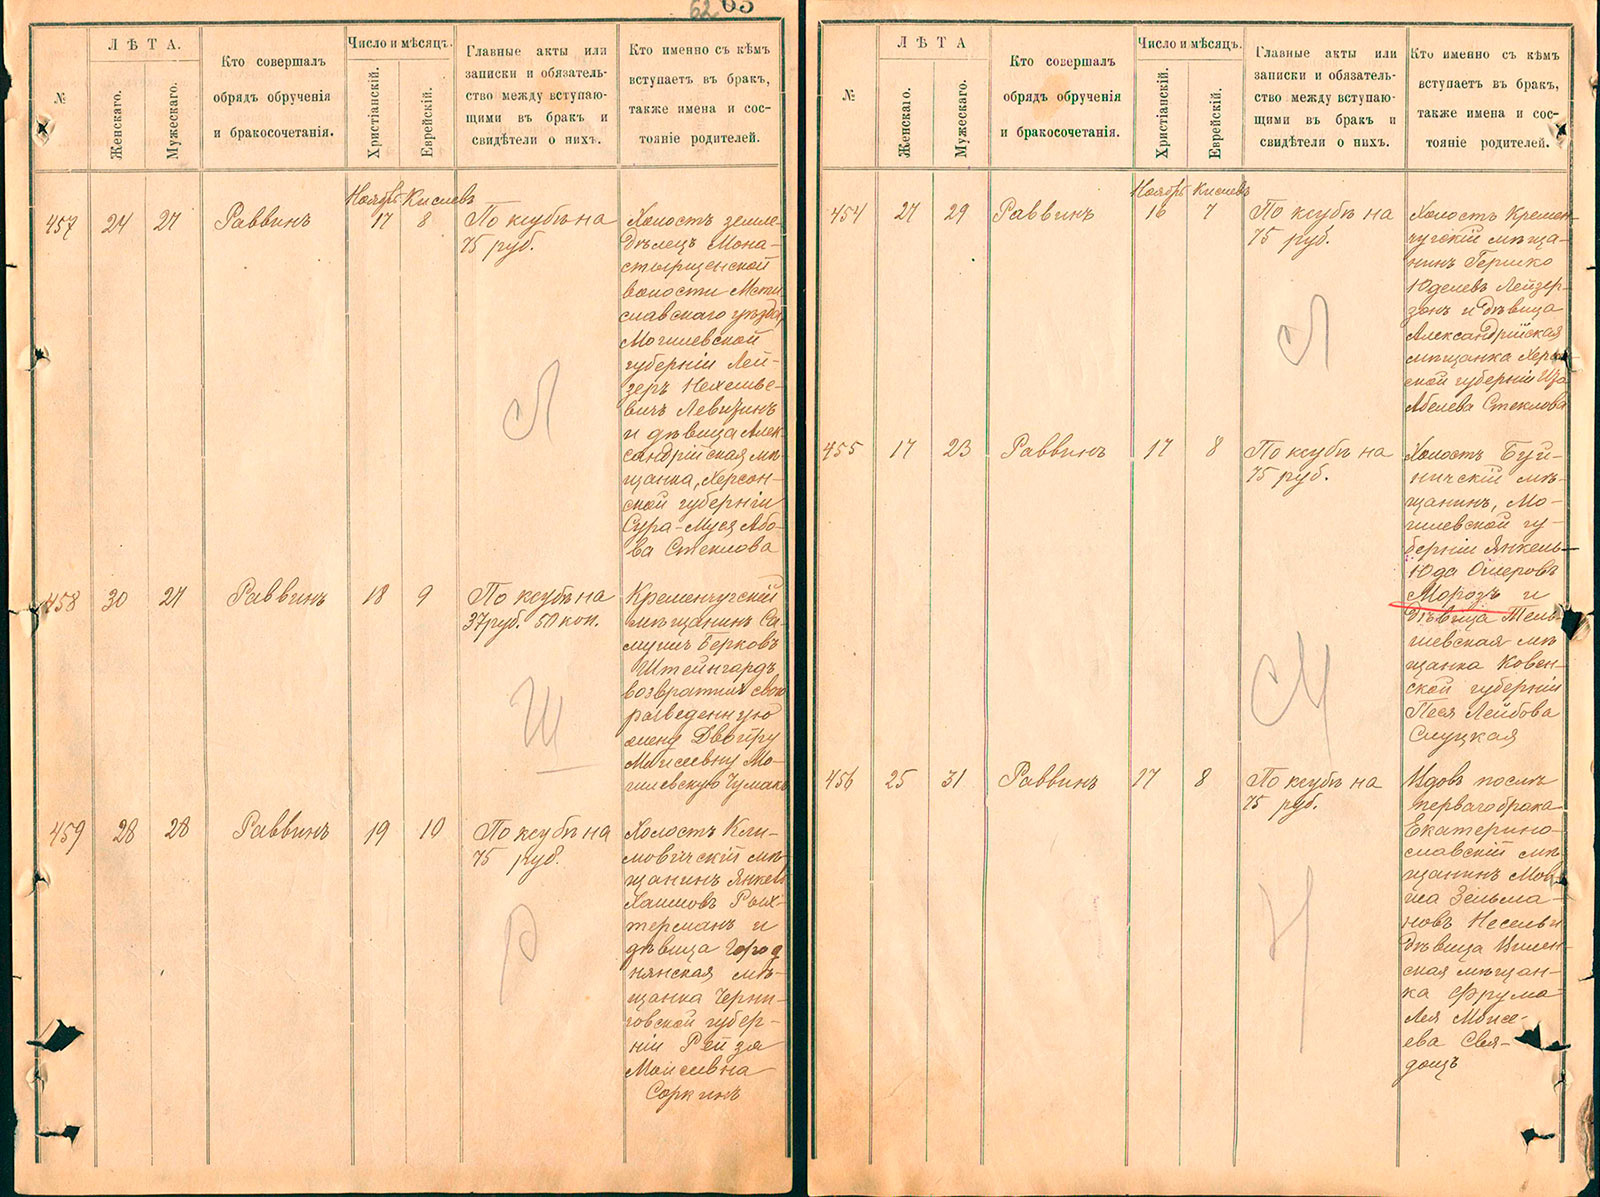 62 63
ЛѢТА.
Число и мѣсяцъ.
№
Женскаго.
Мужескаго.
Кто совершалъ
обрядъ обрученія
и бракосочетанія.
Христіанскій.
Еврейскій.
Главные акты или
записки и обязатель-
ство между вступаю-
щими въ бракъ и
свидѣтели о нихъ.
Кто именно съ кѣмъ
вступаетъ въ бракъ,
также имена и сос-
тояніе родителей.
Ноябрь Кислевъ
457 24 27 Раввинъ 17 8
По ксубѣ на
75 руб.
Холостъ земле-
дѣлецъ Мона-
стырщенской
волости Мсти
славскаго уѣзда,
Могилевской
губерніи Лей-
зеръ Нехемье-
вичъ Левитинъ
и дѣвица Алек-
сандрійская мѣ-
щанка, Херсон-
ской губерніи
Сура-Муся Або-
ва Стеклова
458 30 27 Раввинъ 18 9
По ксубѣ на
37 руб. 50 коп.
Кременчугскій
мѣщанинъ Са-
муилъ Берковъ
Штейнгардъ
возвратилъ свою
разведенную
жену Двойру
Мойсеевну Мо-
гилевскую Чумакъ
459 28 28 Раввинъ 19 10
По ксубѣ на
75 руб.
Холостъ Кли-
мовичскій мѣ-
щанинъ Янкель
Хаимовъ Рых-
терманъ и
дѣвица Город
нянская мѣ-
щанка Черни-
говской губер-
ніи Рейза
Мойсеевна
Соркинъ
Л
Ш
Р
ЛѢТА
Число и мѣсяцъ.
№
Женскаго.
Мужескаго.
Кто совершалъ
обрядъ обрученія
и бракосочетанія.
Христіанскій.
Еврейскій.
Главные акты или
записки и обязатель-
ство между вступаю-
щими въ бракъ и
свидѣтели о нихъ.
Кто именно съ кѣмъ
вступаетъ въ бракъ,
также имена и сос-
тояніе родителей.
Ноябрь Кислевъ
454 27 29 Раввинъ 16 7
По ксубѣ на
75 руб.
Холостъ Кремен
чугскій мѣща-
нинъ Гершко
Юделевъ Лейзер-
зонъ и дѣвица
Александрійская
мѣщанка Херсон
ской губерніи
Абелева Стеклова
455 17 23 Раввинъ 17 8
По ксубѣ на
75 руб.
Холостъ Буй-
ничскій мѣ-
щанинъ, Мо-
гилевской гу-
берніи Янкель-
Юда Омеровъ
Морозъ и
дѣвица Тель-
шевская мѣ
щанка Ковен-
ской губерніи
Песя Лейбова
Слуцкая
456 25 31 Раввинъ 17 8
По ксубѣ на
75 руб.
Вдовъ послѣ
перваго брака
Екатерино-
славскій мѣ-
щанинъ Мов
ша Зельма-
новъ Несель и
дѣвица Вилен-
ская мѣщан-
ка Фрума-
Лея Моисе-
ева Свя-
дощъ
Л
М
Н